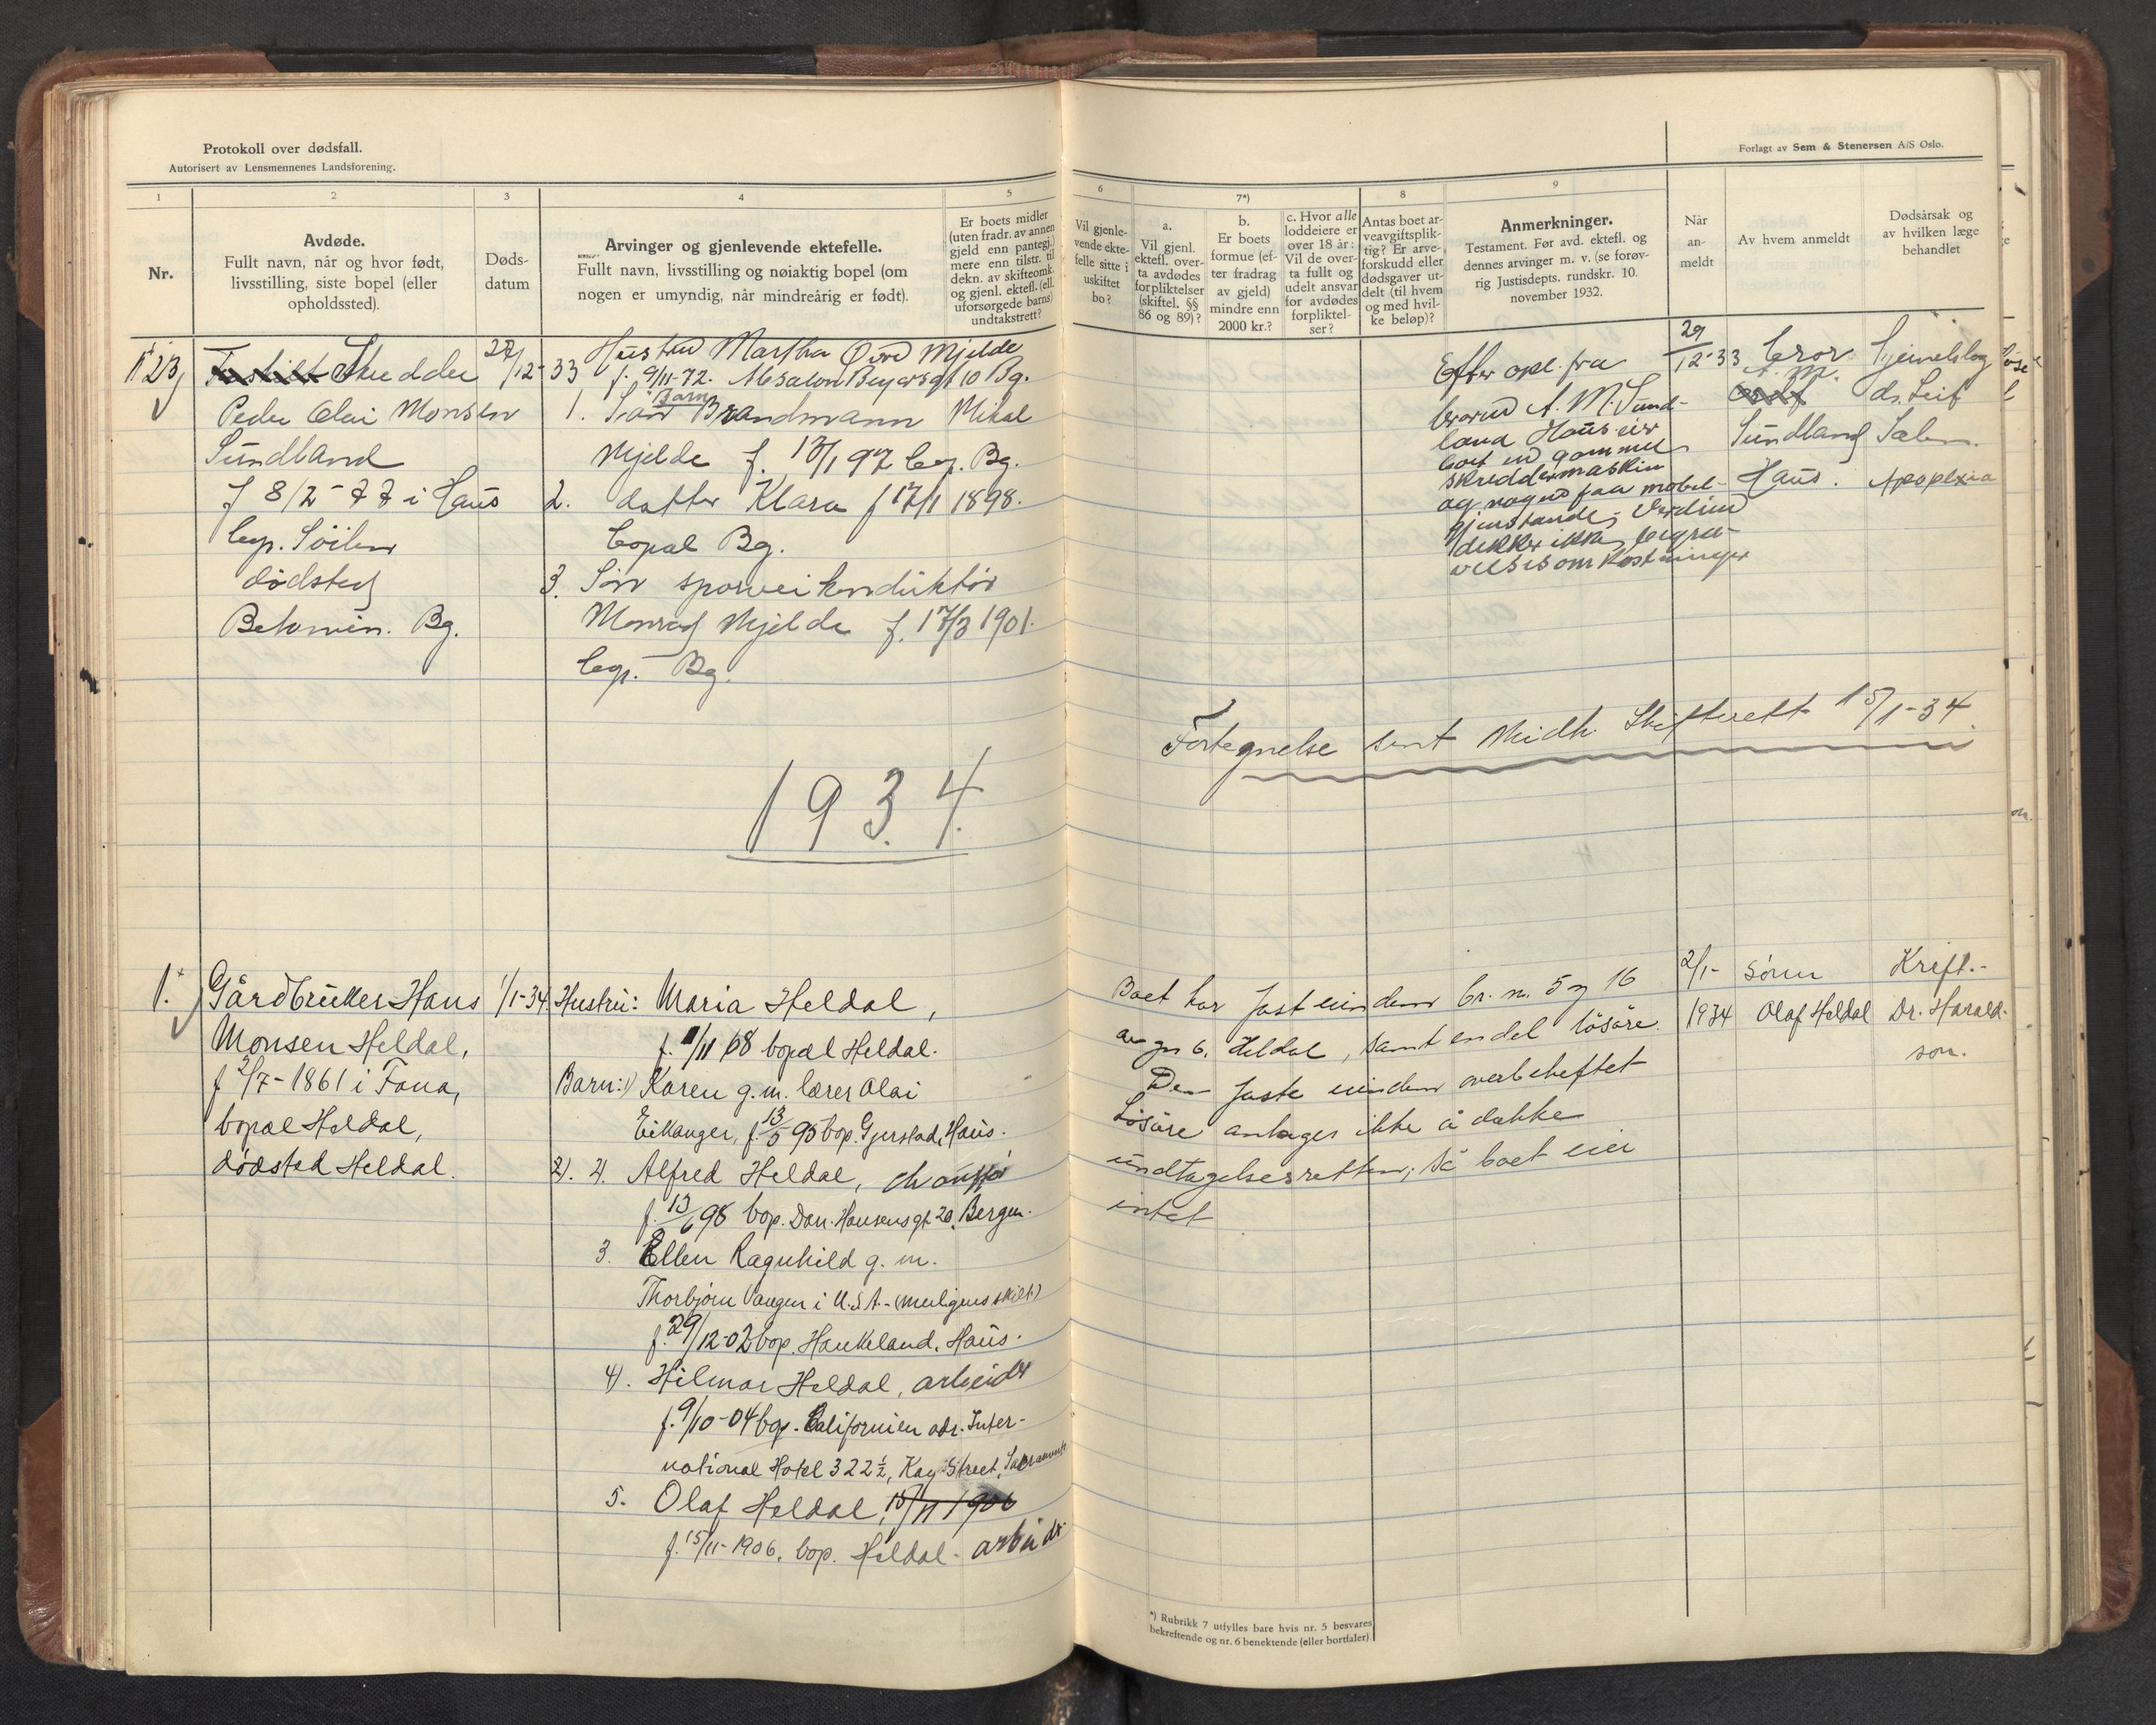 Protokoll over dødsfall.
Autorisert av Lensmennenes Landsforening.
Forlagt av Sem & Stenersen A/S Oslo.
1
2
3
4
5
6
7*)
8
9
Nr.
Avdøde.
Fullt navn, når og hvor født,
livsstilling, siste bopel (eller
opholdssted).
Døds-
datum
Arvinger og gjenlevende ektefelle.
Fullt navn, livsstilling og nøiaktig bopel (om
nogen er umyndig, når mindreårig er født).
Er boets midler
(uten fradr. av annen
gjeld enn pantegj.)
mere enn tilstr. til
dekn. av skifteomk.
og gjenl. ektefl. (ell.
uforsørgede barns)
undtakstrett?
Vil gjenle-
vende ekte-
felle sitte i
uskiftet
bo?
a.
Vil gjenl.
ektefl. over-
ta avdødes
forpliktelser
(skiftel. §§
86 og 89)?
b.
Er boets
formue (ef-
ter fradrag
av gjeld)
mindre enn
2000 kr.?
c. Hvor alle
loddeiere er
over 18 år:
Vil de over-
ta fullt og
udelt ansvar
for avdødes
forpliktel-
ser?
Antas boet ar-
veavgiftsplik-
tig? Er arve-
forskudd eller
dødsgaver ut-
delt (til hvem
og med hvil-
ke beløp)?
Anmerkninger.
Testament. Før avd. ektefl. og
dennes arvinger m. v. (se forøv-
rig Justisdepts. rundskr. 10.
november 1932.
Når
an-
meldt
Av hvem anmeldt
Dødsårsak og
av hvilken læge
behandlet
123
Skredder
Peder Olai Monsen
Sundland
f 8/2-77 i Haus
bop.
dödsted
Bg.
27/12-33
Hustru Martha Mjelde
f. 9/11-72. Absalon Beyersgt 10 Bg.
Barn
1. Sön Brandmann Mikal
Mjelde f. 13/1 97 bop. Bg.
2. datter Klara f 17/1 1898.
bopal Bg.
3. Sön sporveikonduktör
Monrad Mjelde f. 17/3 1901.
bop. Bg.
Efter opl. fra
broren A. M. Sund-
land Haus eier
boet en gammel
skreddermaskin
og nogen faa møbel-
gjenstande; Verdien
dekker ikke begra-
velsesomkostninger
29/12-33
bror
A. M.
Sundland
Haus.
dr. Leif
Apoplexia
Fortegnelse sent Midh. Skifterett 15/1-34
1934.
1.
Gårdbruker Hans
Monsen Heldal,
f 2/7-1861 i Fana,
bopæl Heldal,
dødsted Heldal.
1/1-34.
Hustru: Maria Heldal,
f. 11/11 68 bopæl Heldal.
Barn: 1) Karen g. m. lærer Olai
Eikanger, f. 13/5 95 bop. Gjerstad, Haus.
2). Alfred Heldal, chauffør
f. 13/6 98 bop. Dan. Hansensgt 20, Bergen.
3. Ellen Ragnhild g. m.
Thorbjörn Vangen i U.S.A.-
f. 29/12-02 bop. Haukeland, Haus.
4). Hilmar Heldal, arbeider
f. 9/10-04 bop. Californien adr. Inter-
national Hotel 322½, Kay Street, Sacramento
5. Olaf Heldal, 15/11 1906
f. 15/11-1906. bop. Heldal - arbeider
Boet har fast eiendom br. nr. 5 og 16
av gn 6, Heldal, samt endel lösöre.
Den faste eiendom overbeheftet
Lösöre antages ikke å dække
undtagelsesretten, så boet eier
intet
2/1-
1934
sönn
Olaf Heldal
Kreft.-
Dr. Harald-
son.
*) Rubrikk 7 utfylles bare hvis nr. 5 besvares
bekreftende og nr. 6 benektende (eller bortfaler).